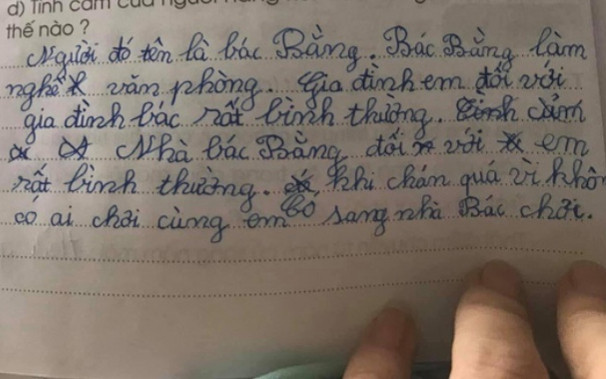 d) Tình cảm của người hàng
thế nào ?
Người đó tên là bác Bằng. Bác Bằng làm
nghề văn phòng. Gia đình em đối với
gia đình bác rất bình thường.
Nhà bác Bằng đối với em
rất bình thường. khi chán quá vì khôn
có ai chơi cùng em sang nhà Bác chơi.